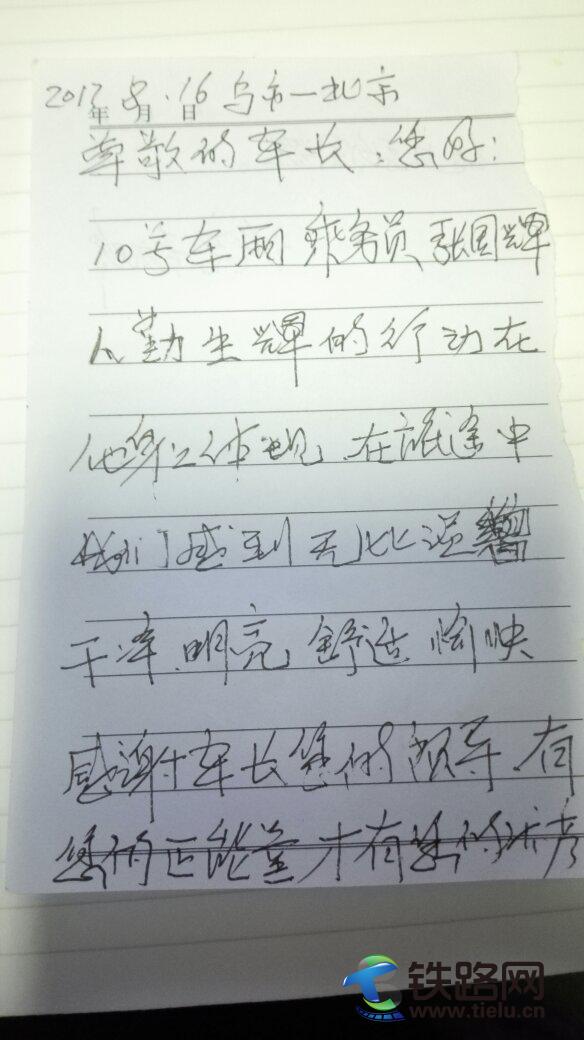 2017年8月16日 乌市—北京
尊敬的车长:您好:
10号车厢乘务员张国辉
人勤 辉的行动在
他身上体现,在旅途中
我们感到无比温馨
干净.明亮,舒适 愉快
感谢车长您的领导,有
您的正能量才有您的
铁路网
www.tielu.cn